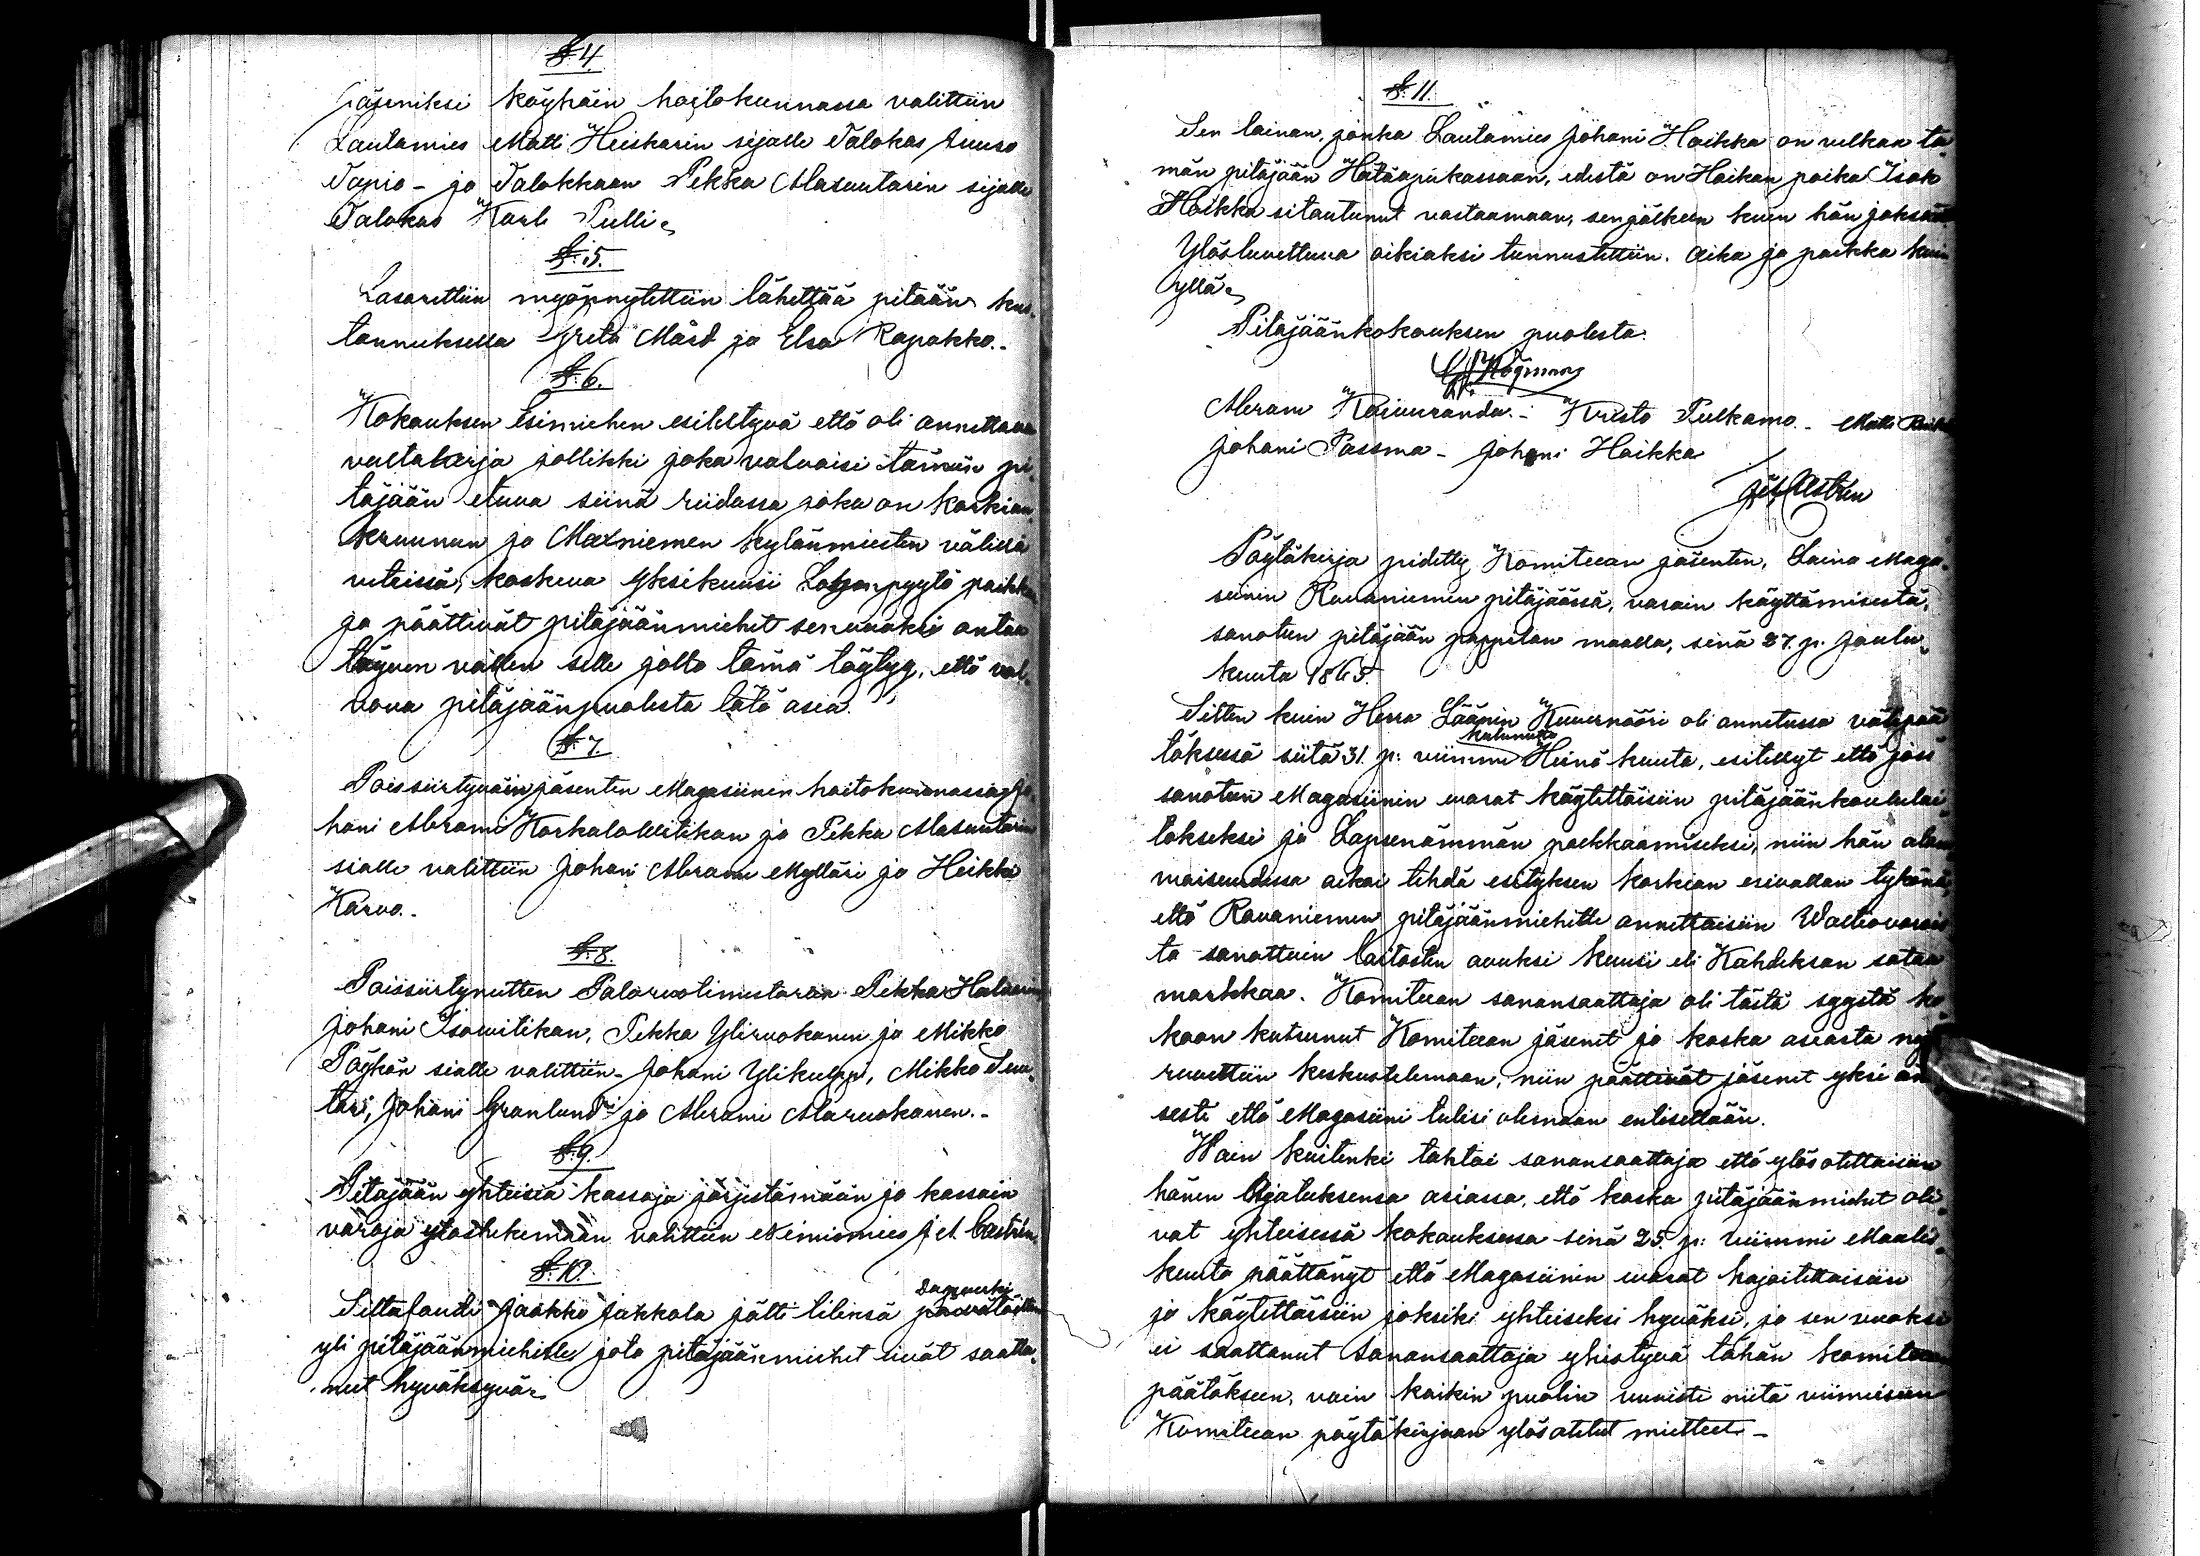 § 4.
Jäseniksi köyhäin hoitokunnassa valittiin
Lautamies Matti Heiskarin sijalle Talokas Juuso
Tapio - ja Talokkaan Pekka Alasuutarin sijalle
Talokas Karl Pulli
§ 5.
Lasarettiin myöpnytettiin lähettää pitään kus-
tannuksella Greta Mård ja Elsa Rapakko.-
§ 6.
Kokouksen Esimiehen esitettyvä että oli annettava
valtakirja jollikki joka valvoisi tämän pi-
täjään etuva siinä riidassa joka on korkian
kruunun ja Marniemen kylänmiesten välillä
vireissä, koskeva yksikuusi Lohen pyytö paikka
ja päättivät pitäjäänmiehet sen vuoksi antaa
täyven vallen selle jolta tämä täytyy, että val-
vova pitäjäänpuolesta tätä asia.
§ 7.
Poissiirtyväin jäsenten Magasiinin hoitokunnassa Jo-
hani Abrami Korkalo Witikan ja Pekka Alasuutarin
sialle valittiin Johani Abram Mylläri ja Heikki
Karvo.-
§ 8.
Poissiirtynutten Paloruotimestaran Pekka
Johani Isowitikan, Pekka Yliruokanen ja Mikko
Pöykön sialle valittiin - Johani Ylikulppi, Mikko Suu-
tari, Johani Granlund ja Abrami Alaruokanen.-
§ 9.
Pitäjään yhteisiä kassaja järjistämään ja kassain
varoja ylöstekemään valittiin Nimismies J. A. Castrén.
§ 10.
Siltafouti Jaakko Jakkola jätti tilinsä
yli pitäjäänmiehille jota pitäjäänmiehet eivät saatta-
neet hyväksyvä
§ 11.
Sen lainan, jonka Lautamies Johani Hoikka on velkaa tä-
män pitäjään Hätäapukassaan, edestä on Hoikan poika Isak
Hoikka sitautunut vastaamaan, senjälkeen kuin hän jaksaa
Ylösluvettuva oikiaksi tunnustettiin. Aika ja paikka kuin
yllä
Pitäjäänkokouksen puolesta.
Abram Koivuranda - Kristo Pulkamo -
Johani Passma - Johani Hoikka
Jeh Castrén
Pöytäkirja pidetty Komitean jäsenten, Laina Maga-
siinin Rovaniemen pitäjäässä, varain käyttämisestä,
sanotun pitäjään pappilan maalla, sinä 27. p. Joulu-
kuuta 1865.
Sitten kuin Herra Läänin Kuvernööri oli annetussa välipää
töksessä siitä 31. p: viimme kulunutta Heinä kuuta, esitellyt että jos
sanotun Magasiinin varat käytettäisiin pitäjäänkoululai-
tokseksi ja Lapsenämmän paikkaamiseksi, niin hän alam-
maisuudessa aikoi tehdä esityksen korkian esivallan tykönä,
että Rovaniemen pitäjäänmiehille annettaisiin Waltiovarois-
ta sanottuin laitosten avuksi kuusi eli Kahdeksan sataa
markkaa. Komitean sanansaattaja oli tästä syystä ko-
koon kutsunut Komitean jäsenet ja koska asiasta nyt
ruvettiin keskustelemaan, niin päättivät jäsenet yksi ää-
sesti että Magasiini tulisi olemaan entisellään.
Wain kuitenki tahtoi sanansaattaja että ylösotettaisiin
hänen Ajatuksensa asiassa, että koska pitäjäänmiehet oli-
vat yhteisessä kokouksessa sinä 25. p: viimmi Maalis-
kuuta päättänyt että Magasiinin varat hajoitettaisiin
ja käytettäisiin joksiki yhteiseksi hyväksi, ja sen vuoksi
ei saattanut Sanansaattaja yhistyvä tähän komitean
päätökseen, vain kaikin puolin uuvisti niitä viimmeisiin
Komitean pöytäkirjaan ylösotetut mietteet -